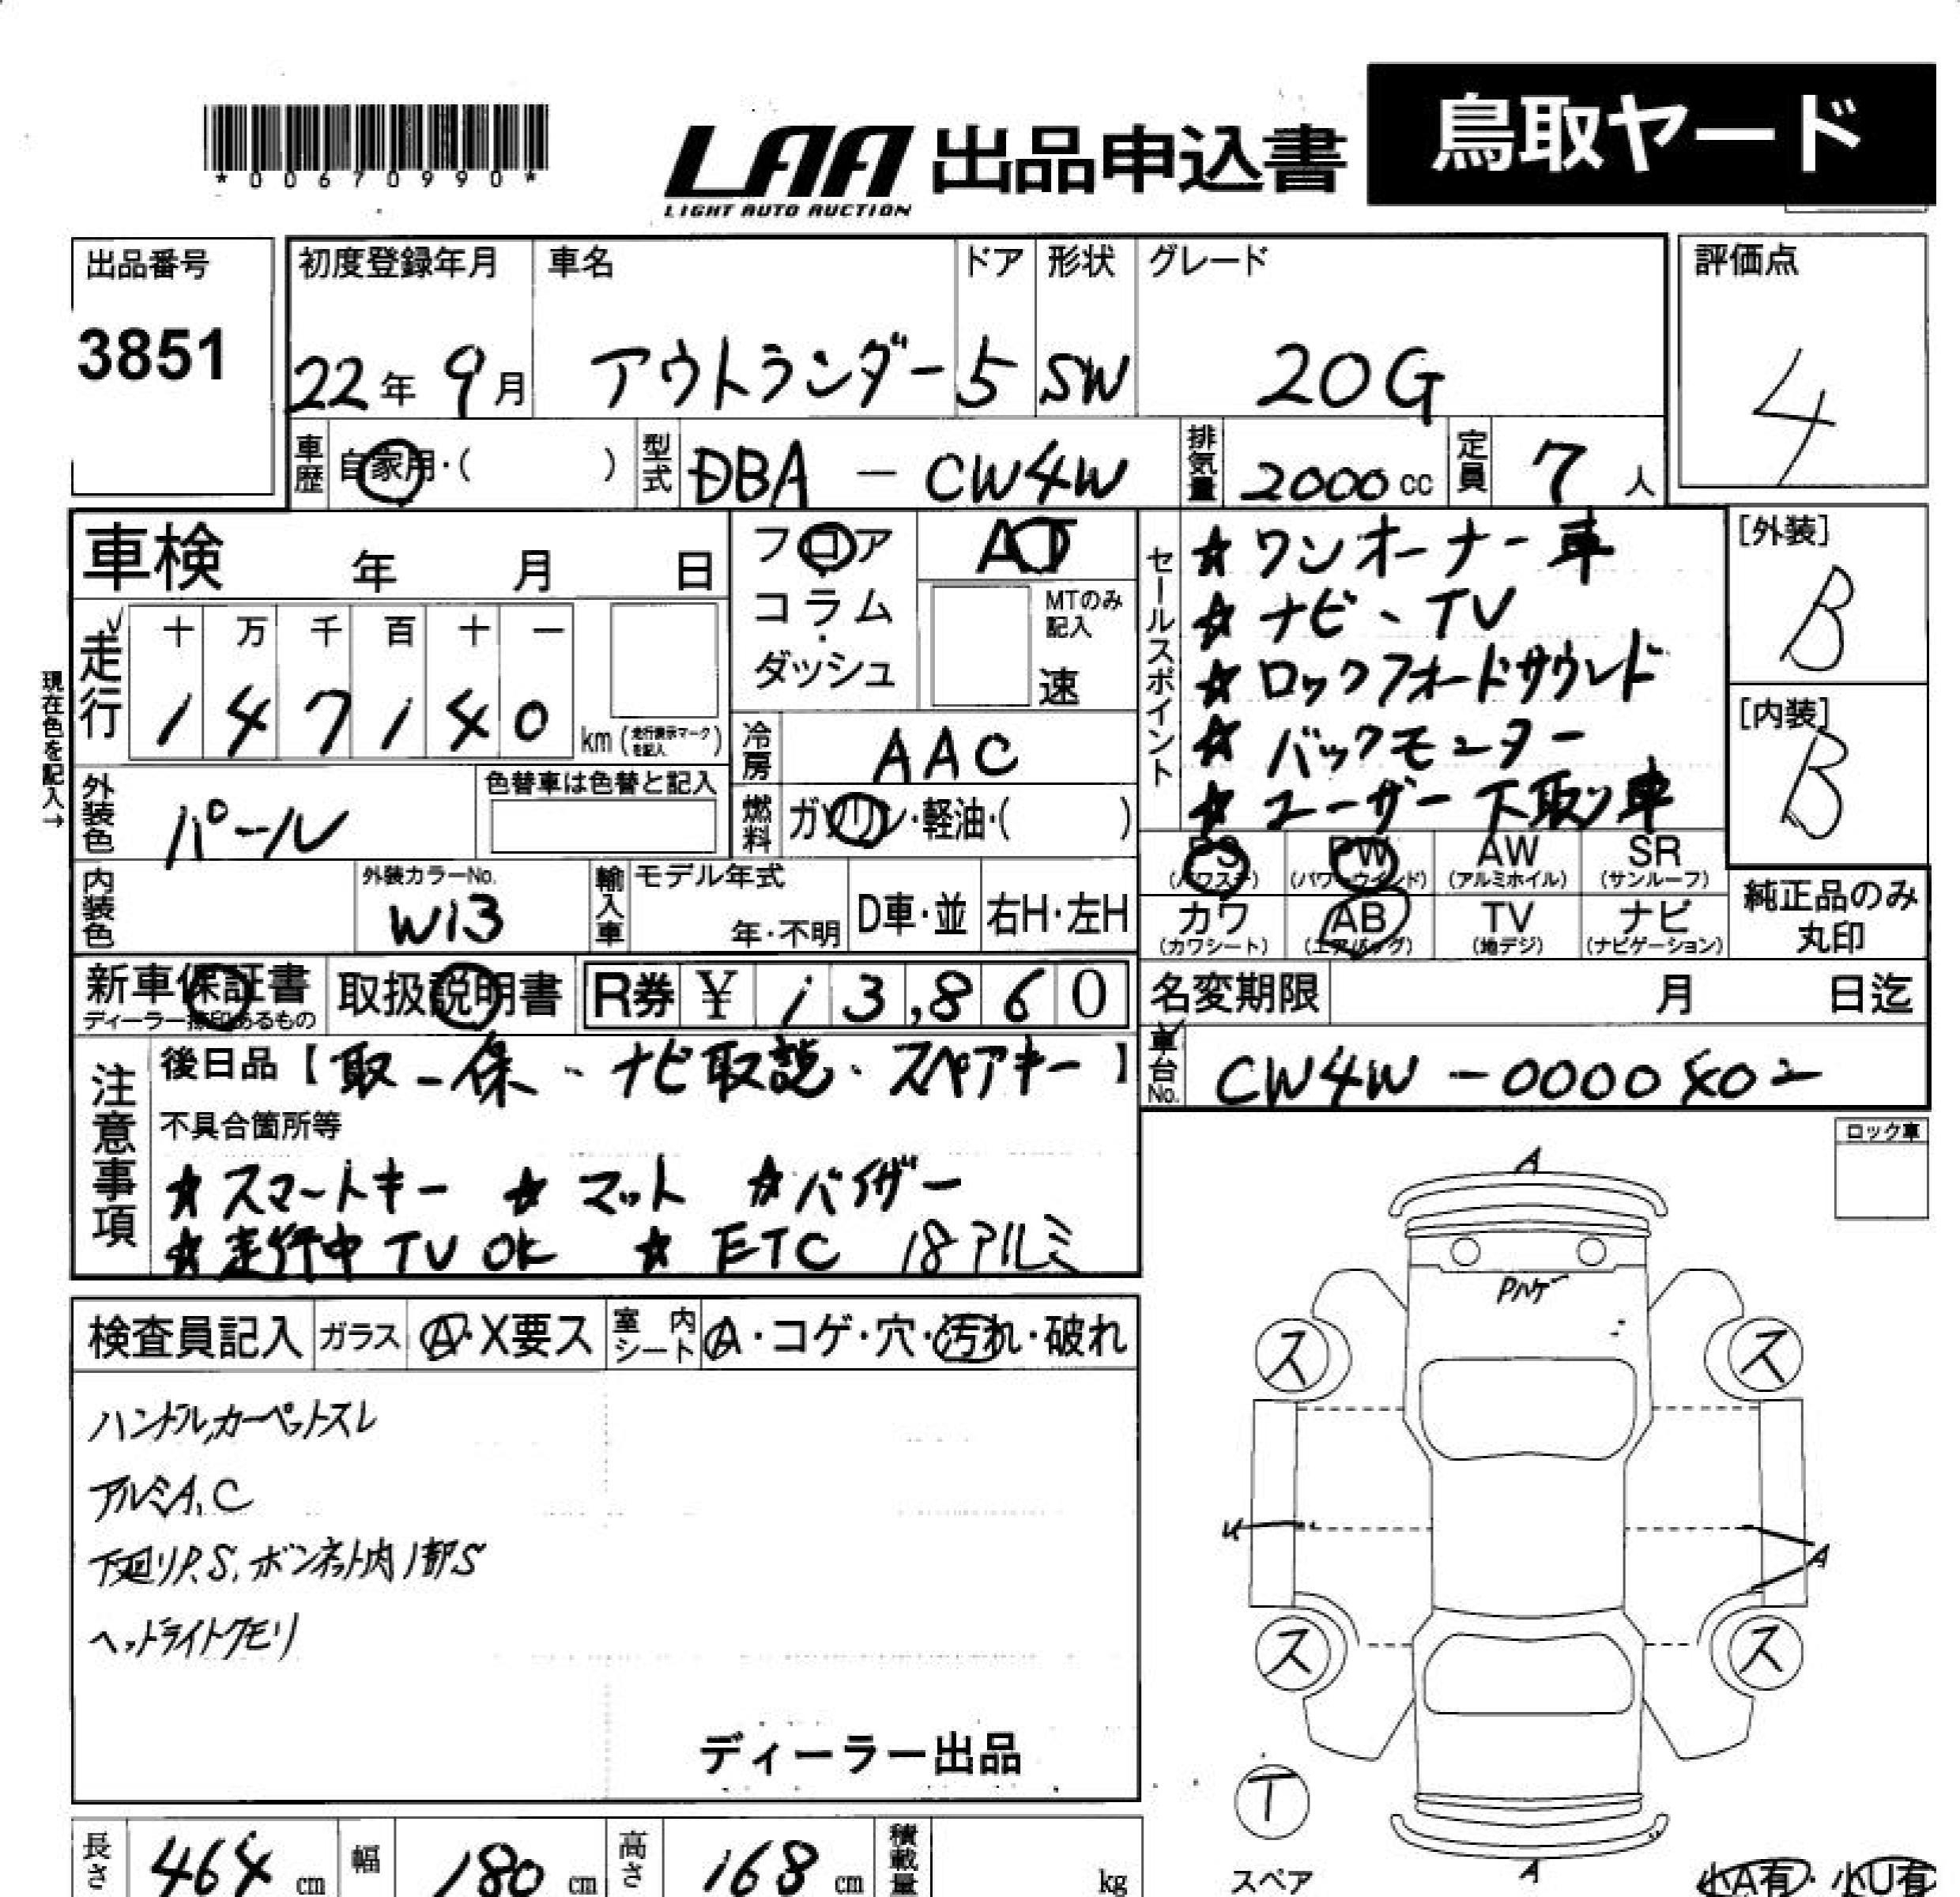 *00670990*
LAA 出品申込書 鳥取ヤード
LIGHT AUTO AUCTION
出品番号 初度登録年月 車名 ドア 形状 グレード 評価点
3851 22年 9月 アウトランダー 5 SW 20G 4
車歴 自家用・( ) 型式 DBA - CW4W 排気量 2000 cc 定員 7 人
車検 年 月 日 フロア AT セールスポイント ★ワンオーナー車 [外装]
コラム・ MTのみ記入 ★ナビ、TV B
ダッシュ 速 ★ロックフォードサウンド
現在色を記入→ 走行 十 万 千 百 十 一
1 4 7 1 4 0 km (走行表示マークを記入) 冷房 AAC ★バックモニター [内装]
外装色 パール 色替車は色替と記入 燃料 ガソリン・軽油・( ) ★ユーザー下取り車 B
内装色 外装カラーNo. 輸入車 モデル年式 PS PW AW SR
(パワステ) (パワーウインド) (アルミホイル) (サンルーフ)
W13 年・不明 D車・並 右H・左H カワ AB TV ナビ 純正品のみ
(カワシート) (エアバッグ) (地デジ) (ナビゲーション) 丸印
新車保証書 取扱説明書 R券 ¥ 13,860 名変期限 月 日迄
ディーラー捺印あるもの
注意事項 後日品【取-保、ナビ取説、スペアキー】 車台No. CW4W-0000402
不具合箇所等 ロック車
★スマートキー ★マット ★バイザー A
★走行中TV OK ★ETC 18アルミ
Pハゲ
検査員記入 ガラス A・X要ス 室内シート A・コゲ・穴・汚れ・破れ
ス ス
ハンドル,カーペットスレ
アルミA、C
下廻りP.S、ボンネット内1部S
U A
ヘッドライトクモリ
ス ス
ディーラー出品
T
長さ 464 cm 幅 180 cm 高さ 168 cm 積載量 kg スペア A 小A有・小U有